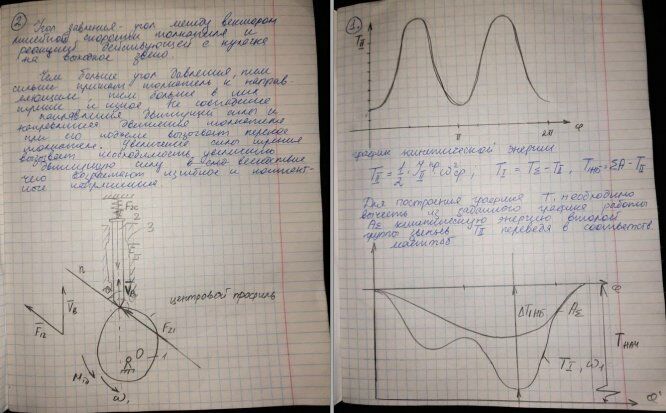 ②
Угол давления - угол между вектором
линейной скорости толкателя и
реакцией действующей с кулачка
на ведомое звено.
Чем больше угол давления, тем
сильнее прижат толкатель к направ
ляющим, тем больше в них
трение и износ. Не совпадение
направления движущий силы и
направления движения толкателя
при его подъеме вызывает перекос
толкателя. Увеличение силы трения
вызывает необходимость увеличить
движущую силу, в
чего возрастают изгибное и контакт-
ные напряжения.
F20
2
3
n
V_B
центровой профиль
V_B
F12
F21
O
1
ω1
1.
T_II
π
2π
φ
график кинетической энергии
T_II = 1/2 · ω²ср, T_I = T_Σ - T_II, = ΣA - T_II
Для построения графика T₁ необходимо
вычесть из заданного графика работы
A_Σ кинетическую энергию второй
группы звеньев T_II переведя в соответств.
масштаб
φ
ΔT_Iнб
A_Σ
T_нач
T_I, ω1
φ'